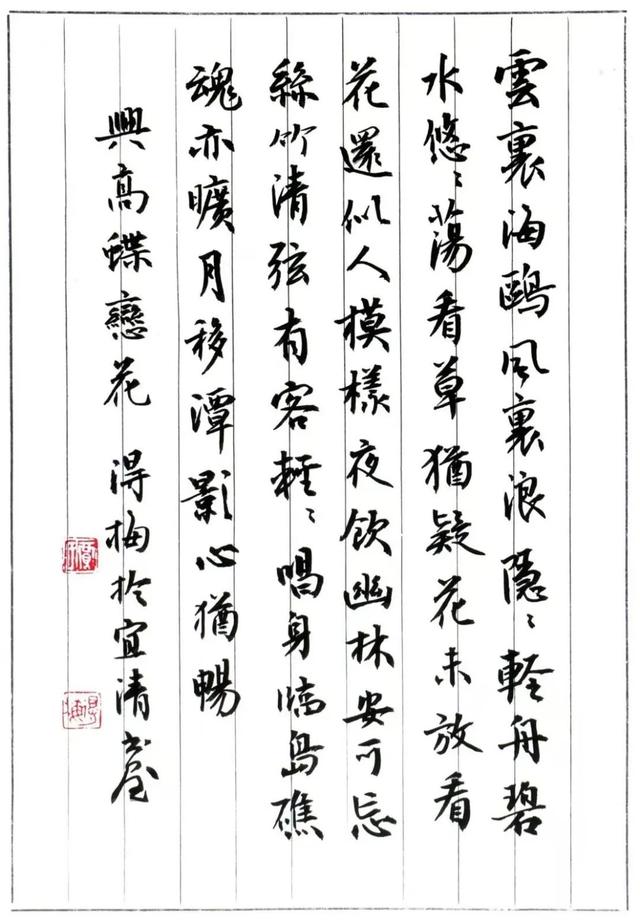 雲裏海鷗風裏浪隱〻輕舟碧
水悠〻蕩看草猶疑花未放看
花還似人模樣夜飲幽林安可忘
絲竹清弦有客輕〻唱身臨島礁
魂亦曠月移潭影心猶暢
興高蝶戀花 得梅於宜清書屋